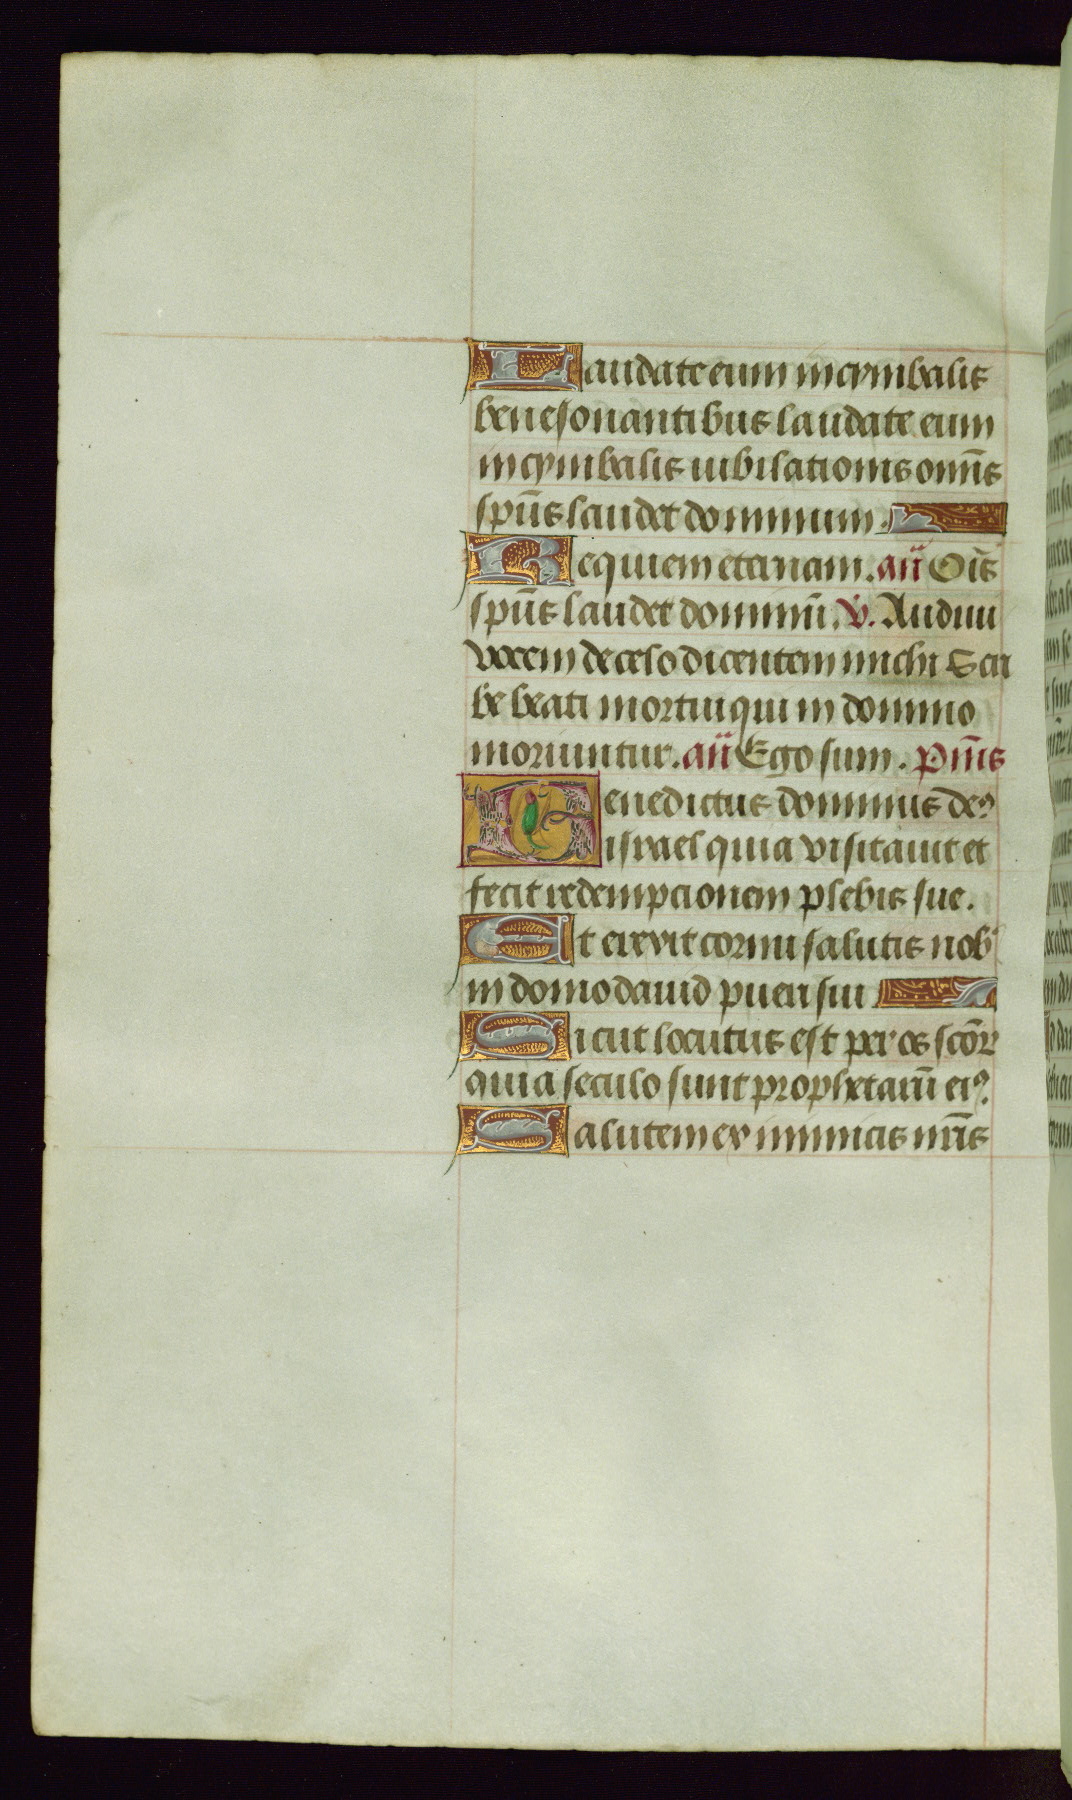 Laudate eum in cymbalis
benesonantibus laudate eum
in cymbalis iubilationis om̄is
sp̄us laudet dominum.
Requiem eternam. an̄ Oīs
sp̄us laudet dominū. V. Audiui
vocem de celo dicentem michi Scri
be beati mortui qui in domino
moriuntur. an̄ Ego sum. p̄mīs
Benedictus dominus deꝰ
israel quia visitauit et
fecit redempcionem plebis sue.
Et erexit cornu salutis nob
in domo dauid pueri sui
Sicut locutus est per os scōr
qui a seculo sunt prophetarū eiꝰ.
Salutem ex inimicis nr̄is